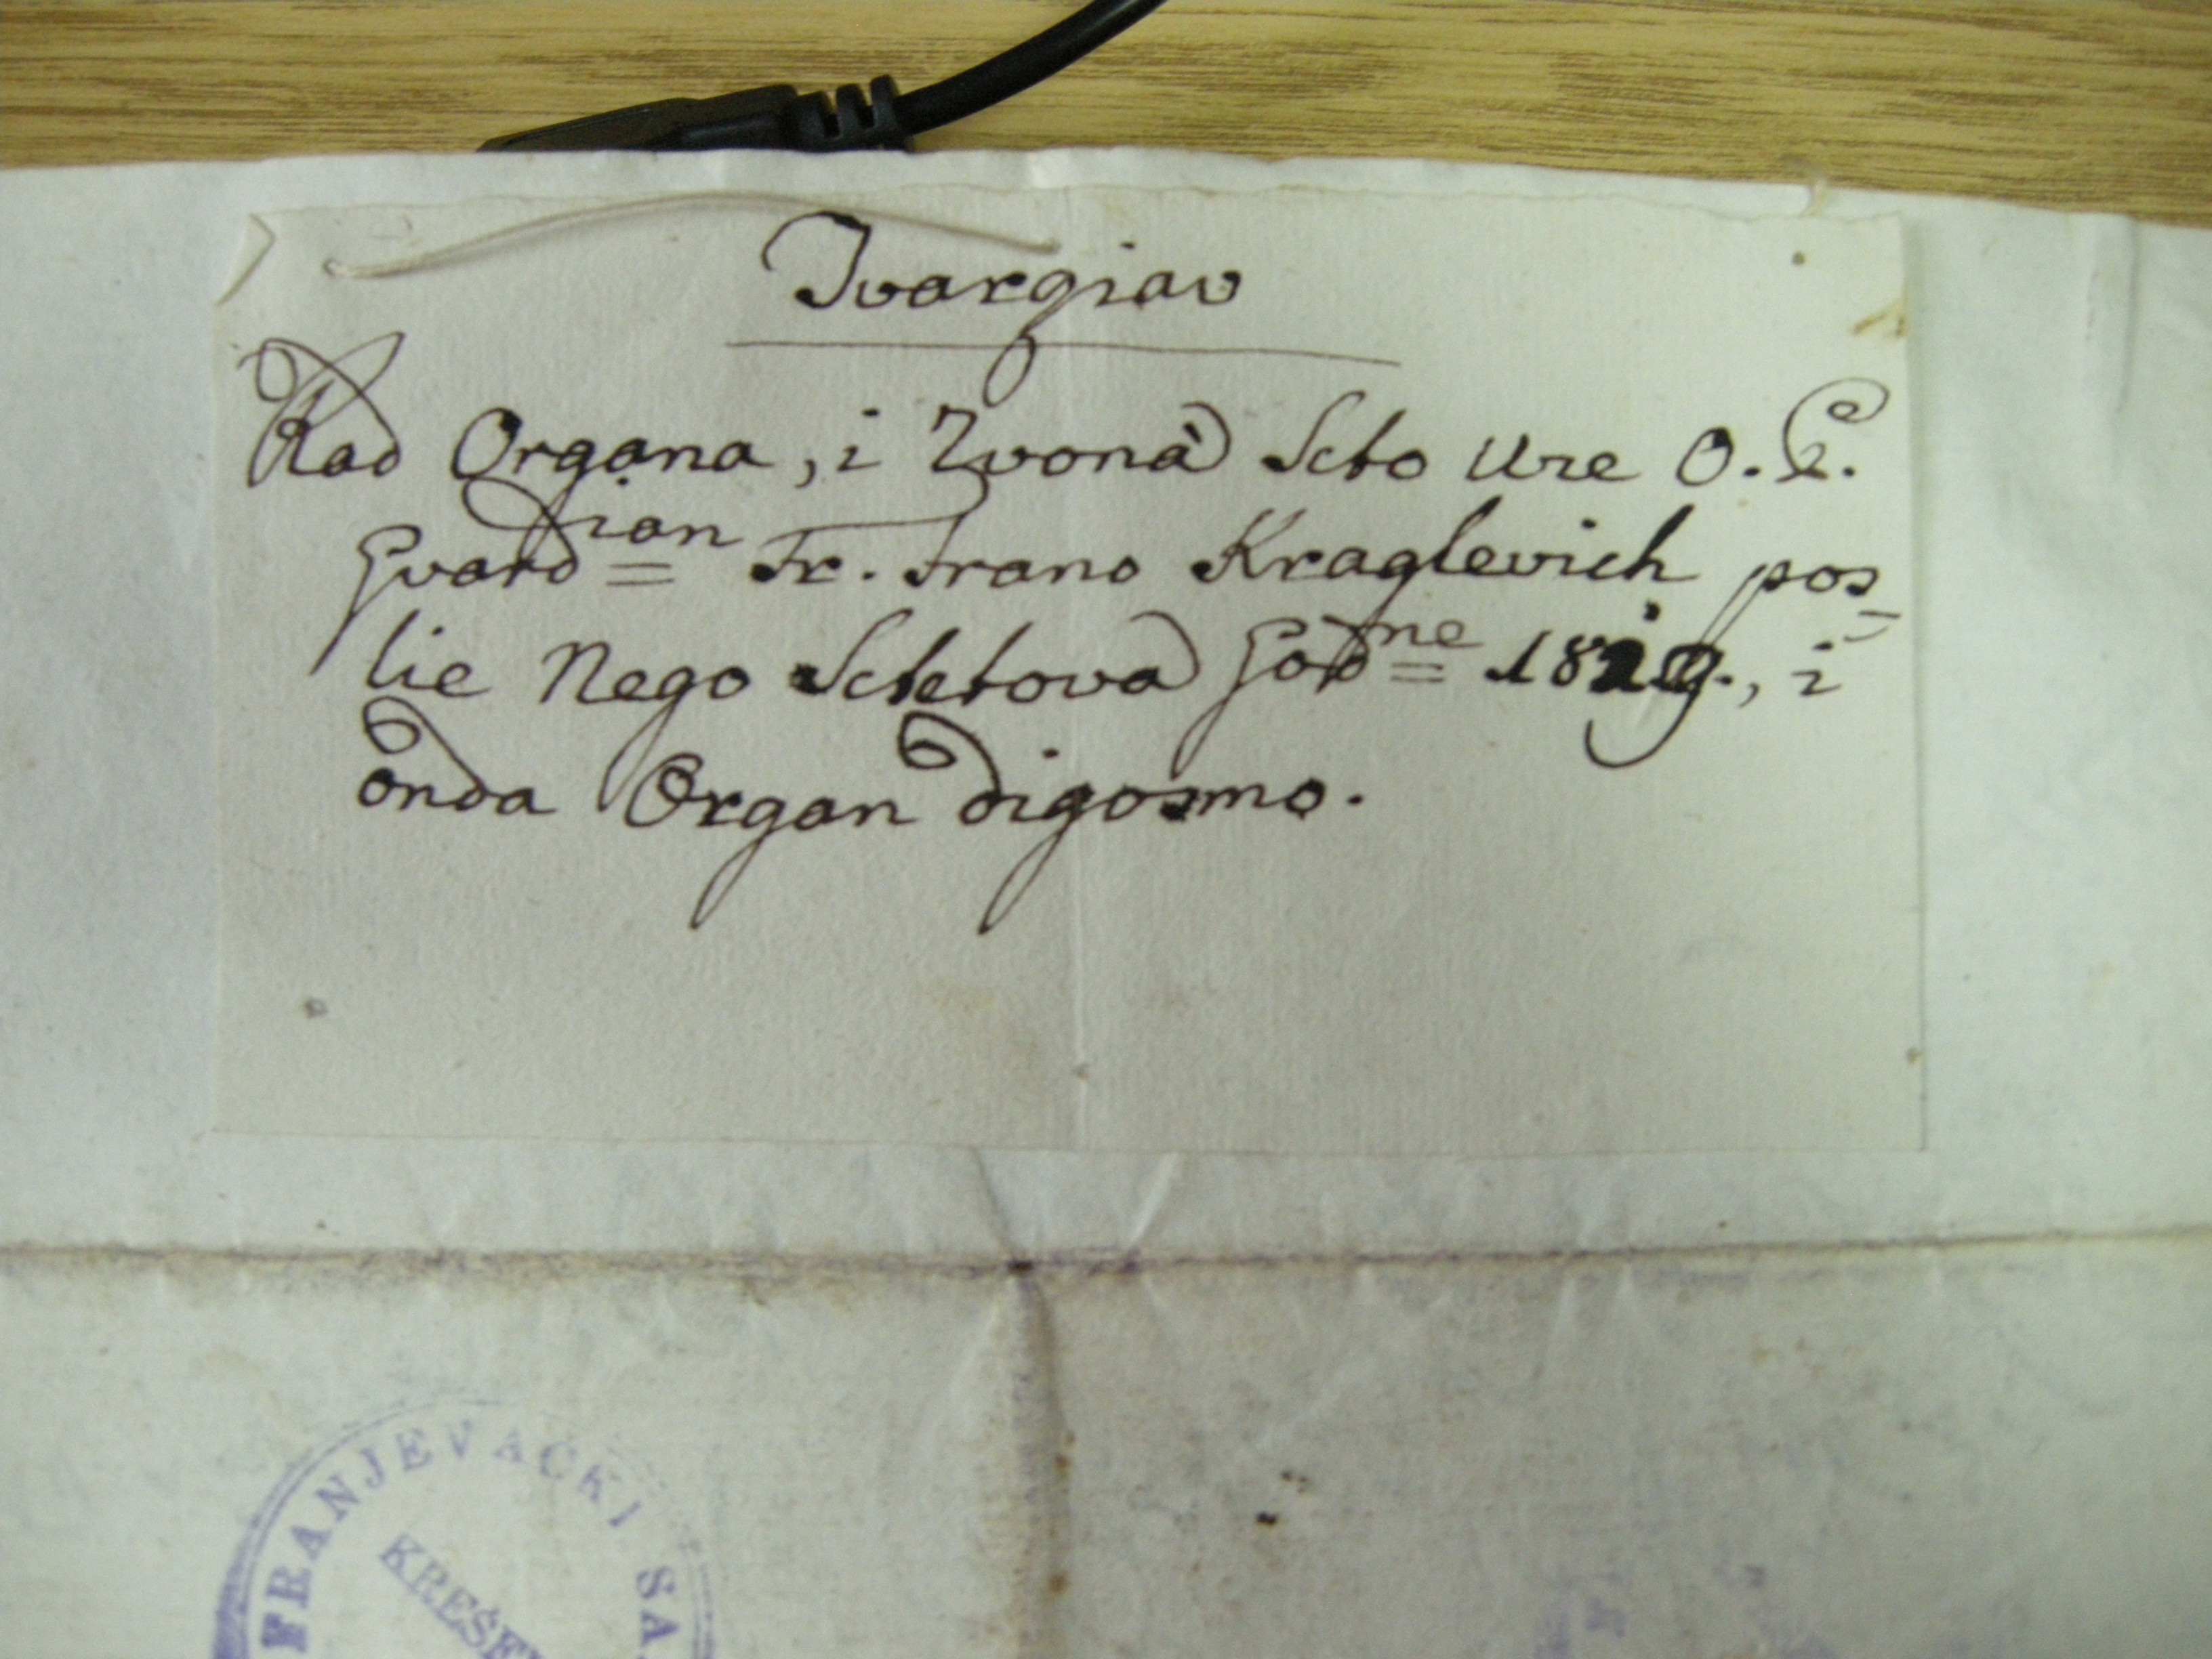 Ivargiav
Kad Organa, i Zvonà Scto Ure O. P.
Gvardian = Fr. Frano Kraglevich pos=
lie Nego Sctetova God=ne 1829., i
onda Organ digosmo.
FRANJEVAČKI SA
KREŠE